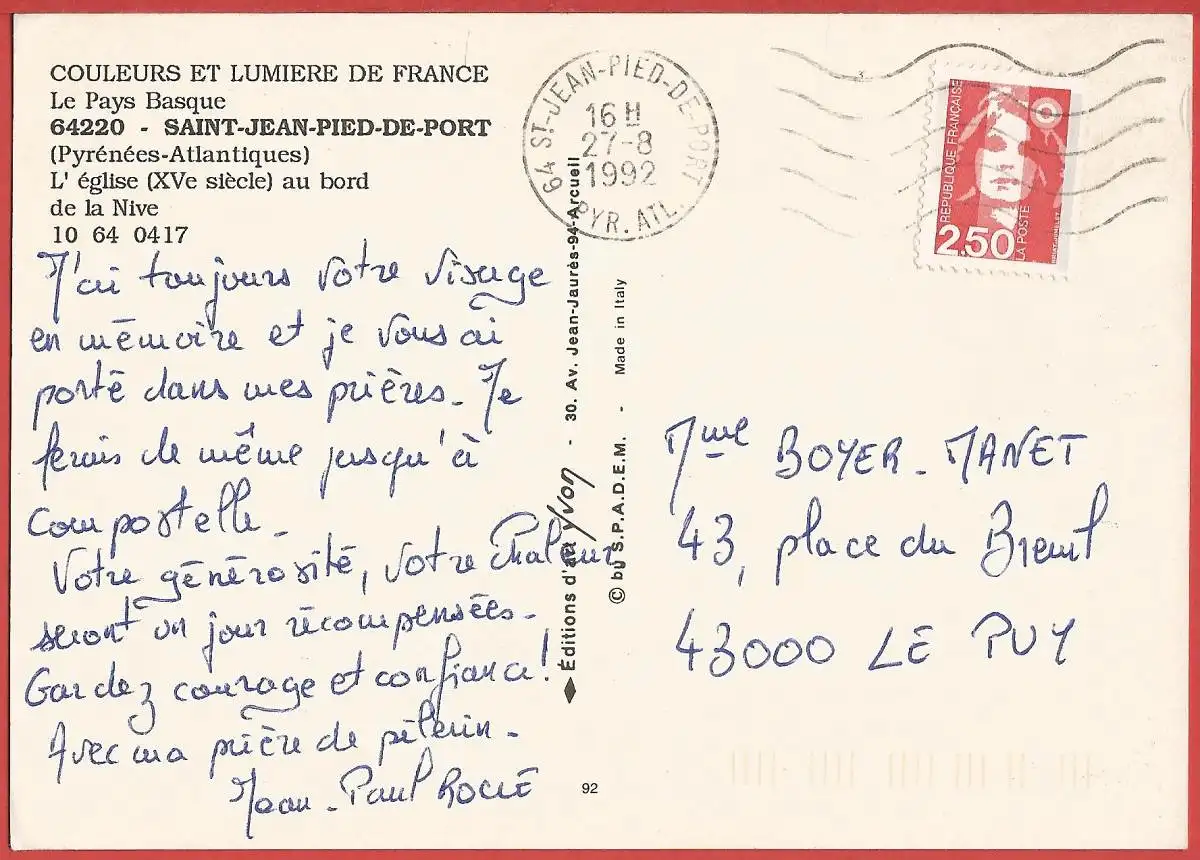 COULEURS ET LUMIERE DE FRANCE
Le Pays Basque
64220 - SAINT-JEAN-PIED-DE-PORT
(Pyrénées-Atlantiques)
L' église (XVe siècle) au bord
de la Nive
10 64 0417
J'ai toujours votre visage
en mémoire et je vous ai
porté dans mes prières. Je
ferais de même jusqu'à
Compostelle.
Votre générosité, votre Chaleur
seront un jour récompensées.
Gardez courage et confiance!
Avec ma prière de pèlerin.
Jean-Paul
64 ST-JEAN-PIED-DE-PORT
16 H
27-8
1992
PYR. ATL.
REPUBLIQUE FRANÇAISE
2,50
LA POSTE
Éditions d'art Yvon - 30. Av. Jean-Jaurès-94-Arcueil
© by S.P.A.D.E.M. - Made in Italy
Mme BOYER-MANET
43, place du Breuil
43000 LE PUY
92